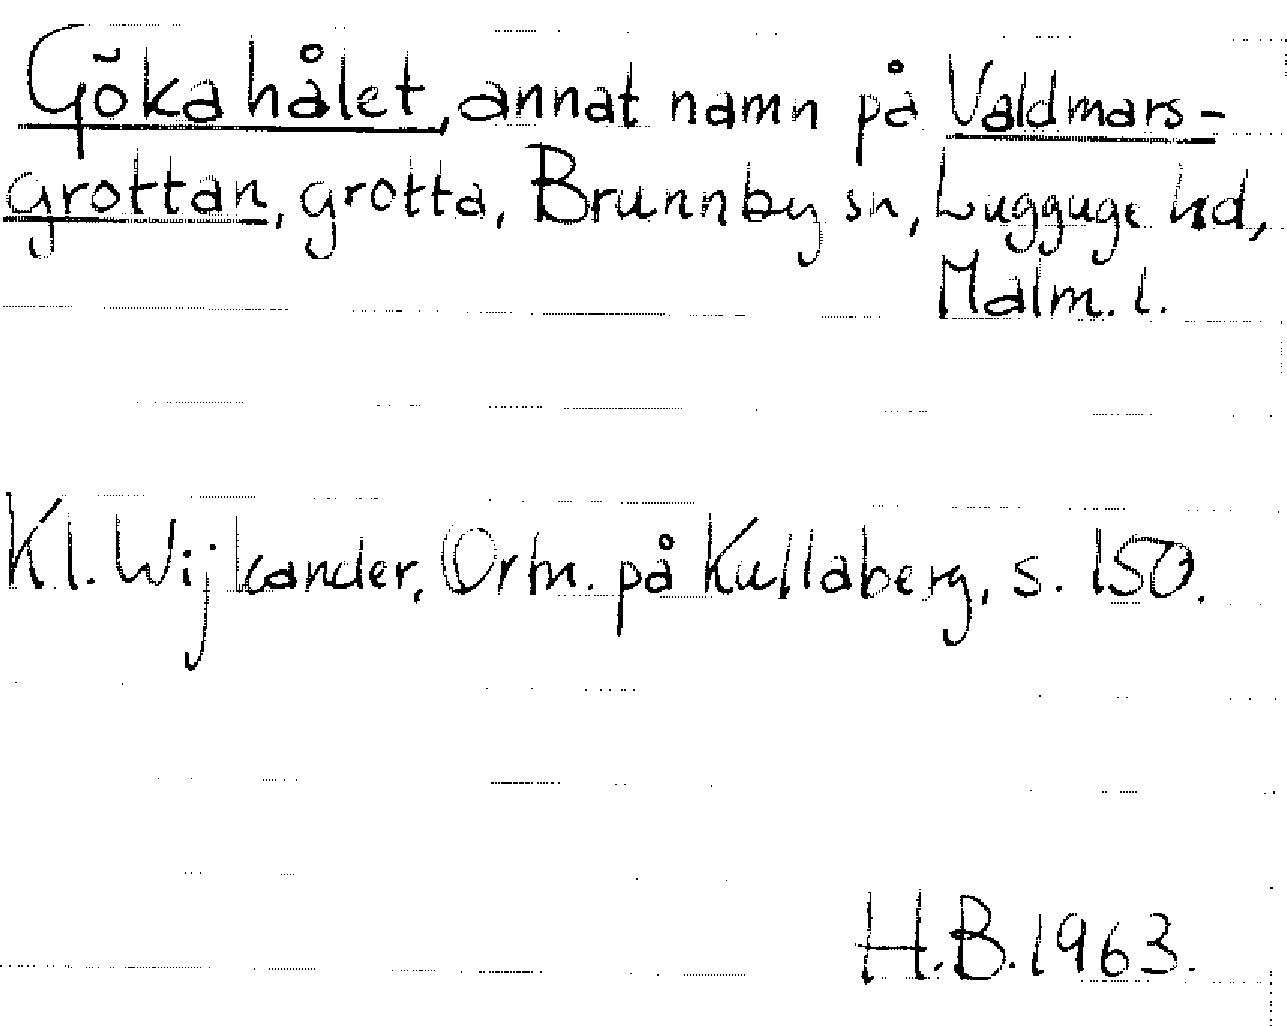 Gökahålet, annat namn på Valdmars-
grottan, grotta, Brunnby sn, Luggude hd,
Malm. l.
Kl. Wijkander, Ortn. på Kullaberg, s. 150.
H.B. 1963.